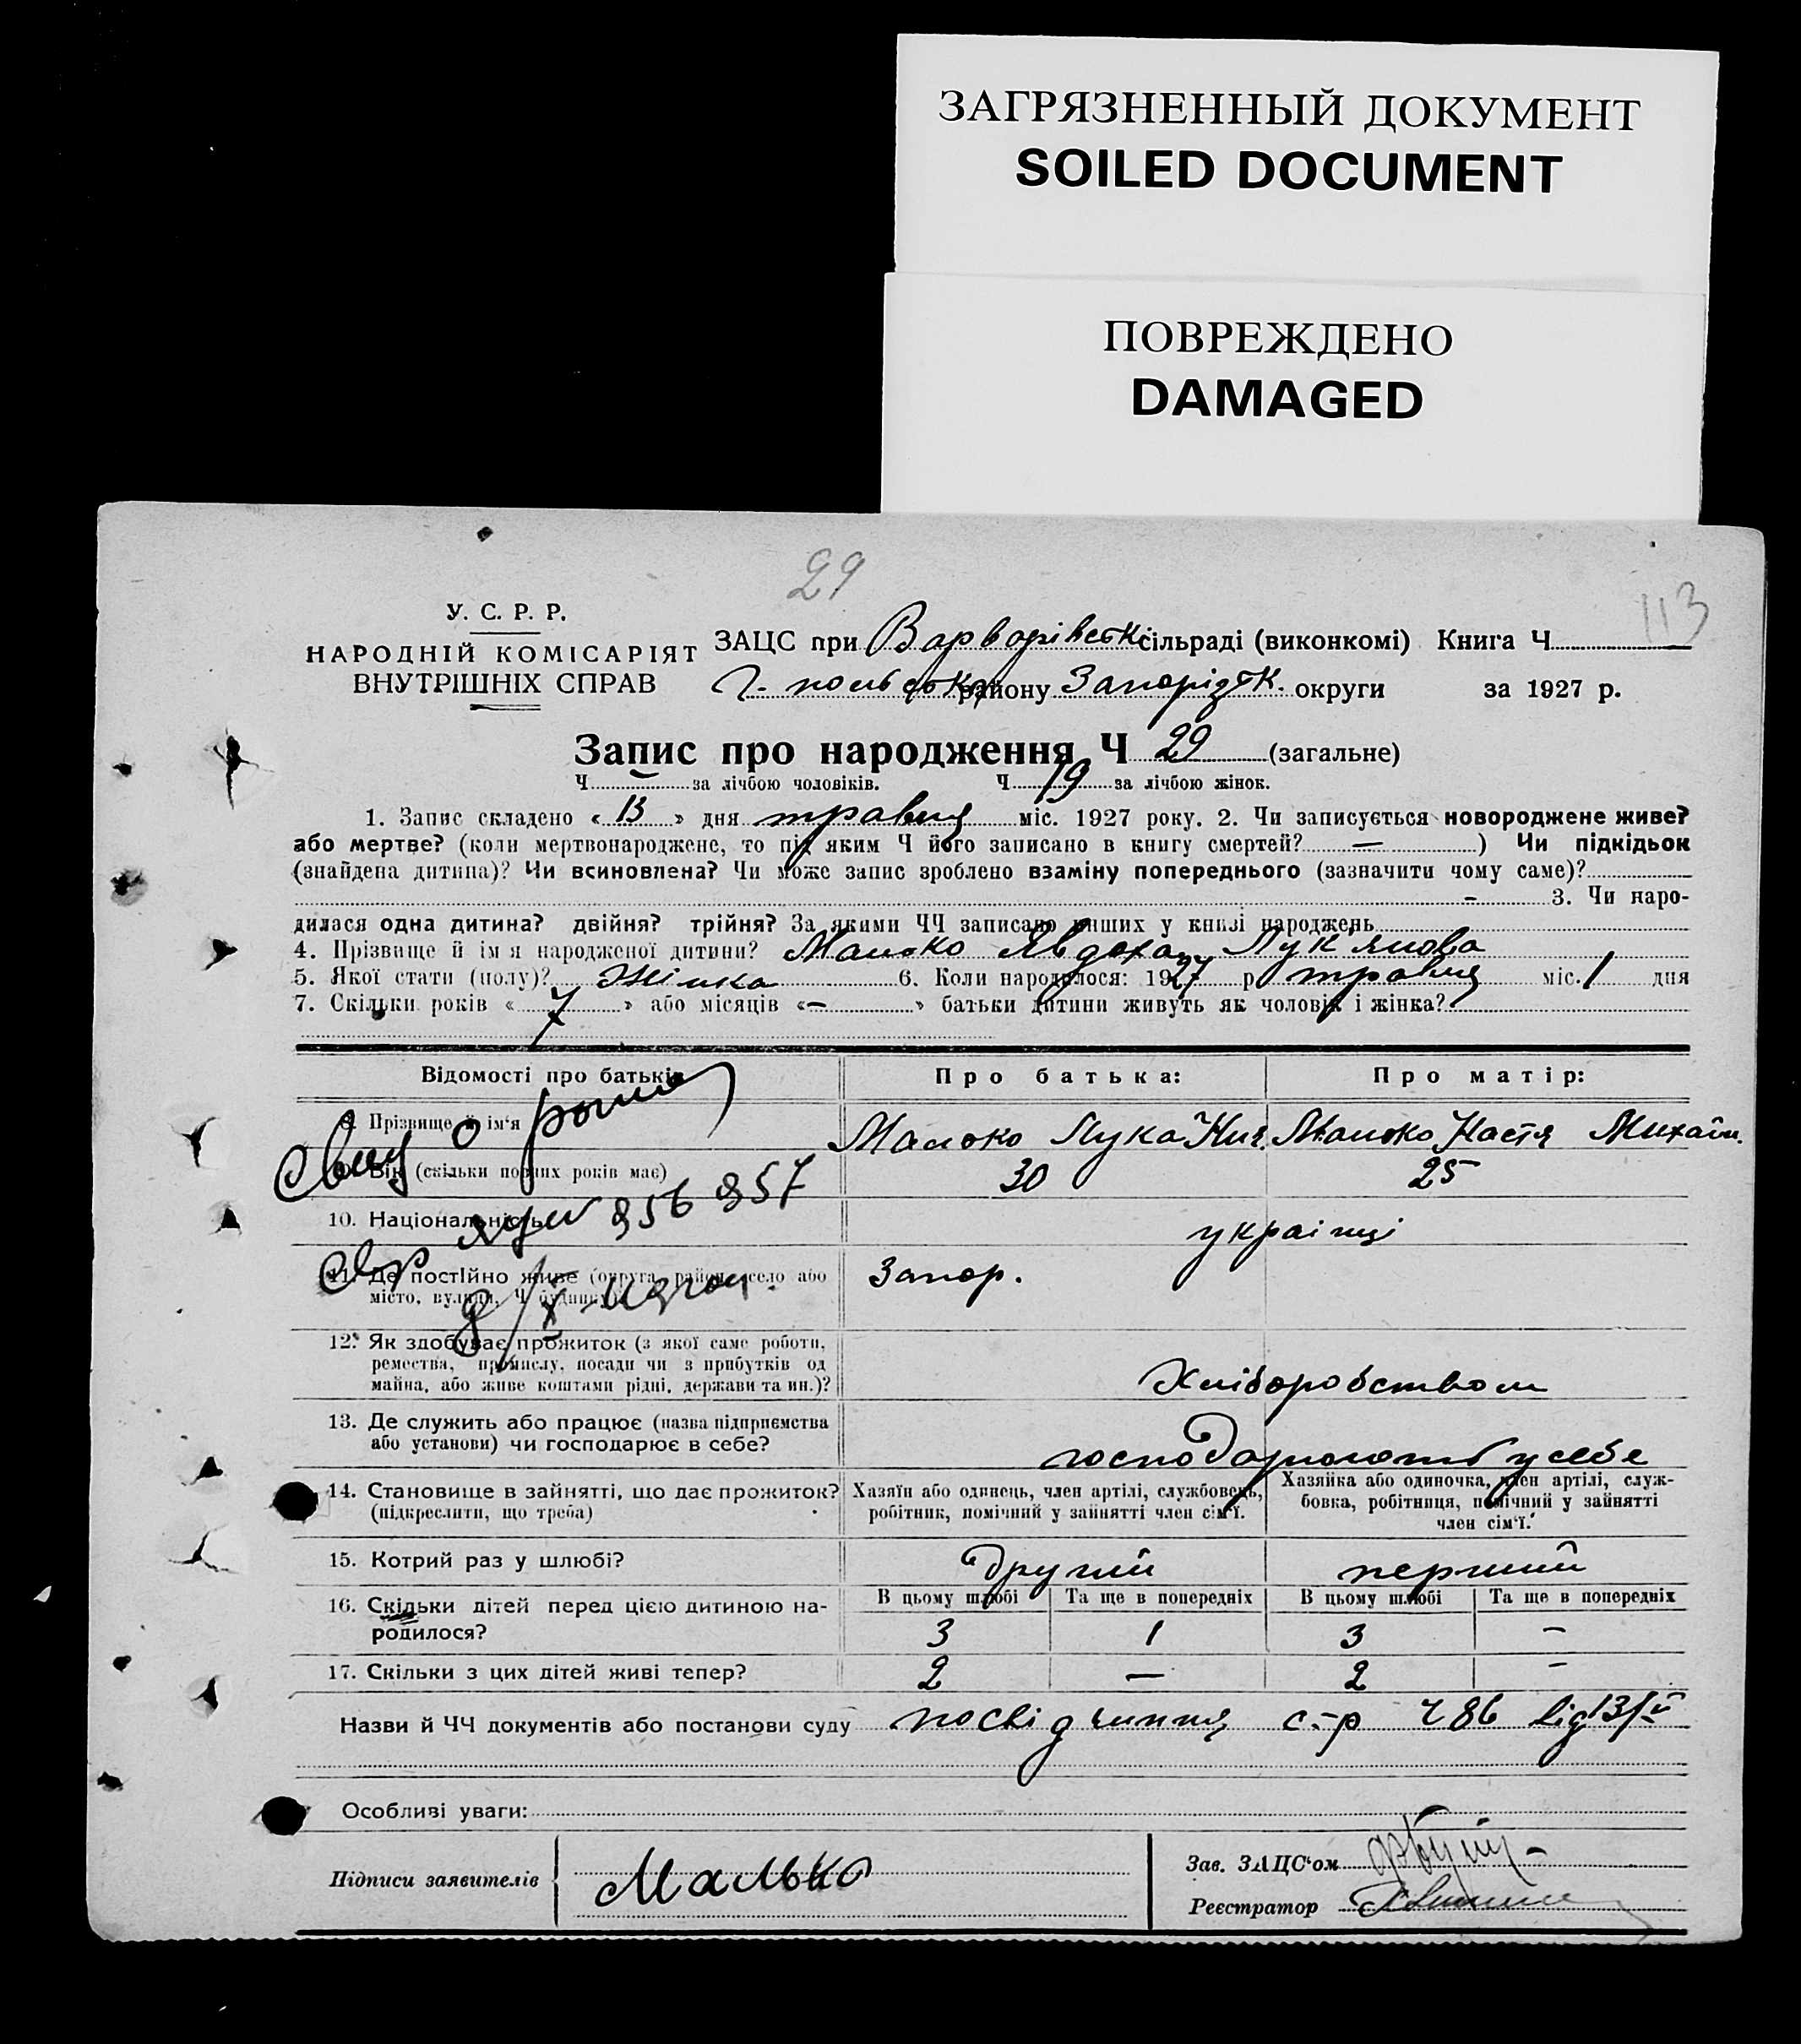 ЗАГРЯЗНЕННЫЙ ДОКУМЕНТ
SOILED DOCUMENT
ПОВРЕЖДЕНО
DAMAGED
29
113
У. С. Р. Р.
НАРОДНІЙ КОМІСАРІЯТ
ВНУТРІШНІХ СПРАВ
ЗАЦС при Варворівськ сільраді (виконкомі) Книга Ч
Г. польськ району Запорізьк. округи за 1927 р.
Запис про народження Ч 29 (загальне)
Ч — за лічбою чоловіків. Ч 19 за лічбою жінок.
1. Запис складено « 13 » дня травня міс. 1927 року. 2. Чи записується новороджене живе?
або мертве? (коли мертвонароджене, то під яким Ч його записано в книгу смертей? — ) Чи підкідьок
(знайдена дитина)? Чи всиновлена? Чи може запис зроблено взаміну попереднього (зазначити чому саме)?
— 3. Чи наро-
дилася одна дитина? двійня? трійня? За якими ЧЧ записано инших у книзі народжень
4. Прізвище й ім'я народженої дитини? Малько Явдоха Лук'янова
5. Якої стати (полу)? Жінка 6. Коли народилося: 1927 р травня міс. 1 дня
7. Скільки років « 7 » або місяців «—» батьки дитини живуть як чоловік і жінка?
Відомості про батьків Про батька: Про матір:
8. Прізвище й ім'я Малько Лука Малько Настя Михайл.
9. Вік (скільки повних років має) 30 25
856 857
10. Національність українці
11. Де постійно живе (округа, район, село або Запор.
місто, вулиця, Ч будинку)
12. Як здобуває прожиток (з якої саме роботи,
ремества, промислу, посади чи з прибутків од
майна, або живе коштами рідні, держави та ин.)? Хліборобством
13. Де служить або працює (назва підприємства
або установи) чи господарює в себе? господарюють у себе
14. Становище в зайнятті, що дає прожиток? Хазяїн або одинець, член артілі, службовець, Хазяйка або одиночка, член артілі, служ-
(підкреслити, що треба) робітник, помічний у зайнятті член сім'ї. бовка, робітниця, помічний у зайнятті
член сім'ї.
15. Котрий раз у шлюбі? Другий перший
16. Скільки дітей перед цією дитиною на- В цьому шлюбі Та ще в попередніх В цьому шлюбі Та ще в попередніх
родилося? 3 1 3 —
17. Скільки з цих дітей живі тепер? 2 — 2 —
Назви й ЧЧ документів або постанови суду посвідчення с-р Ч 86 від 13/V
Особливі уваги:
Підписи заявителів Малько
Зав. ЗАЦС'ом
Реєстратор